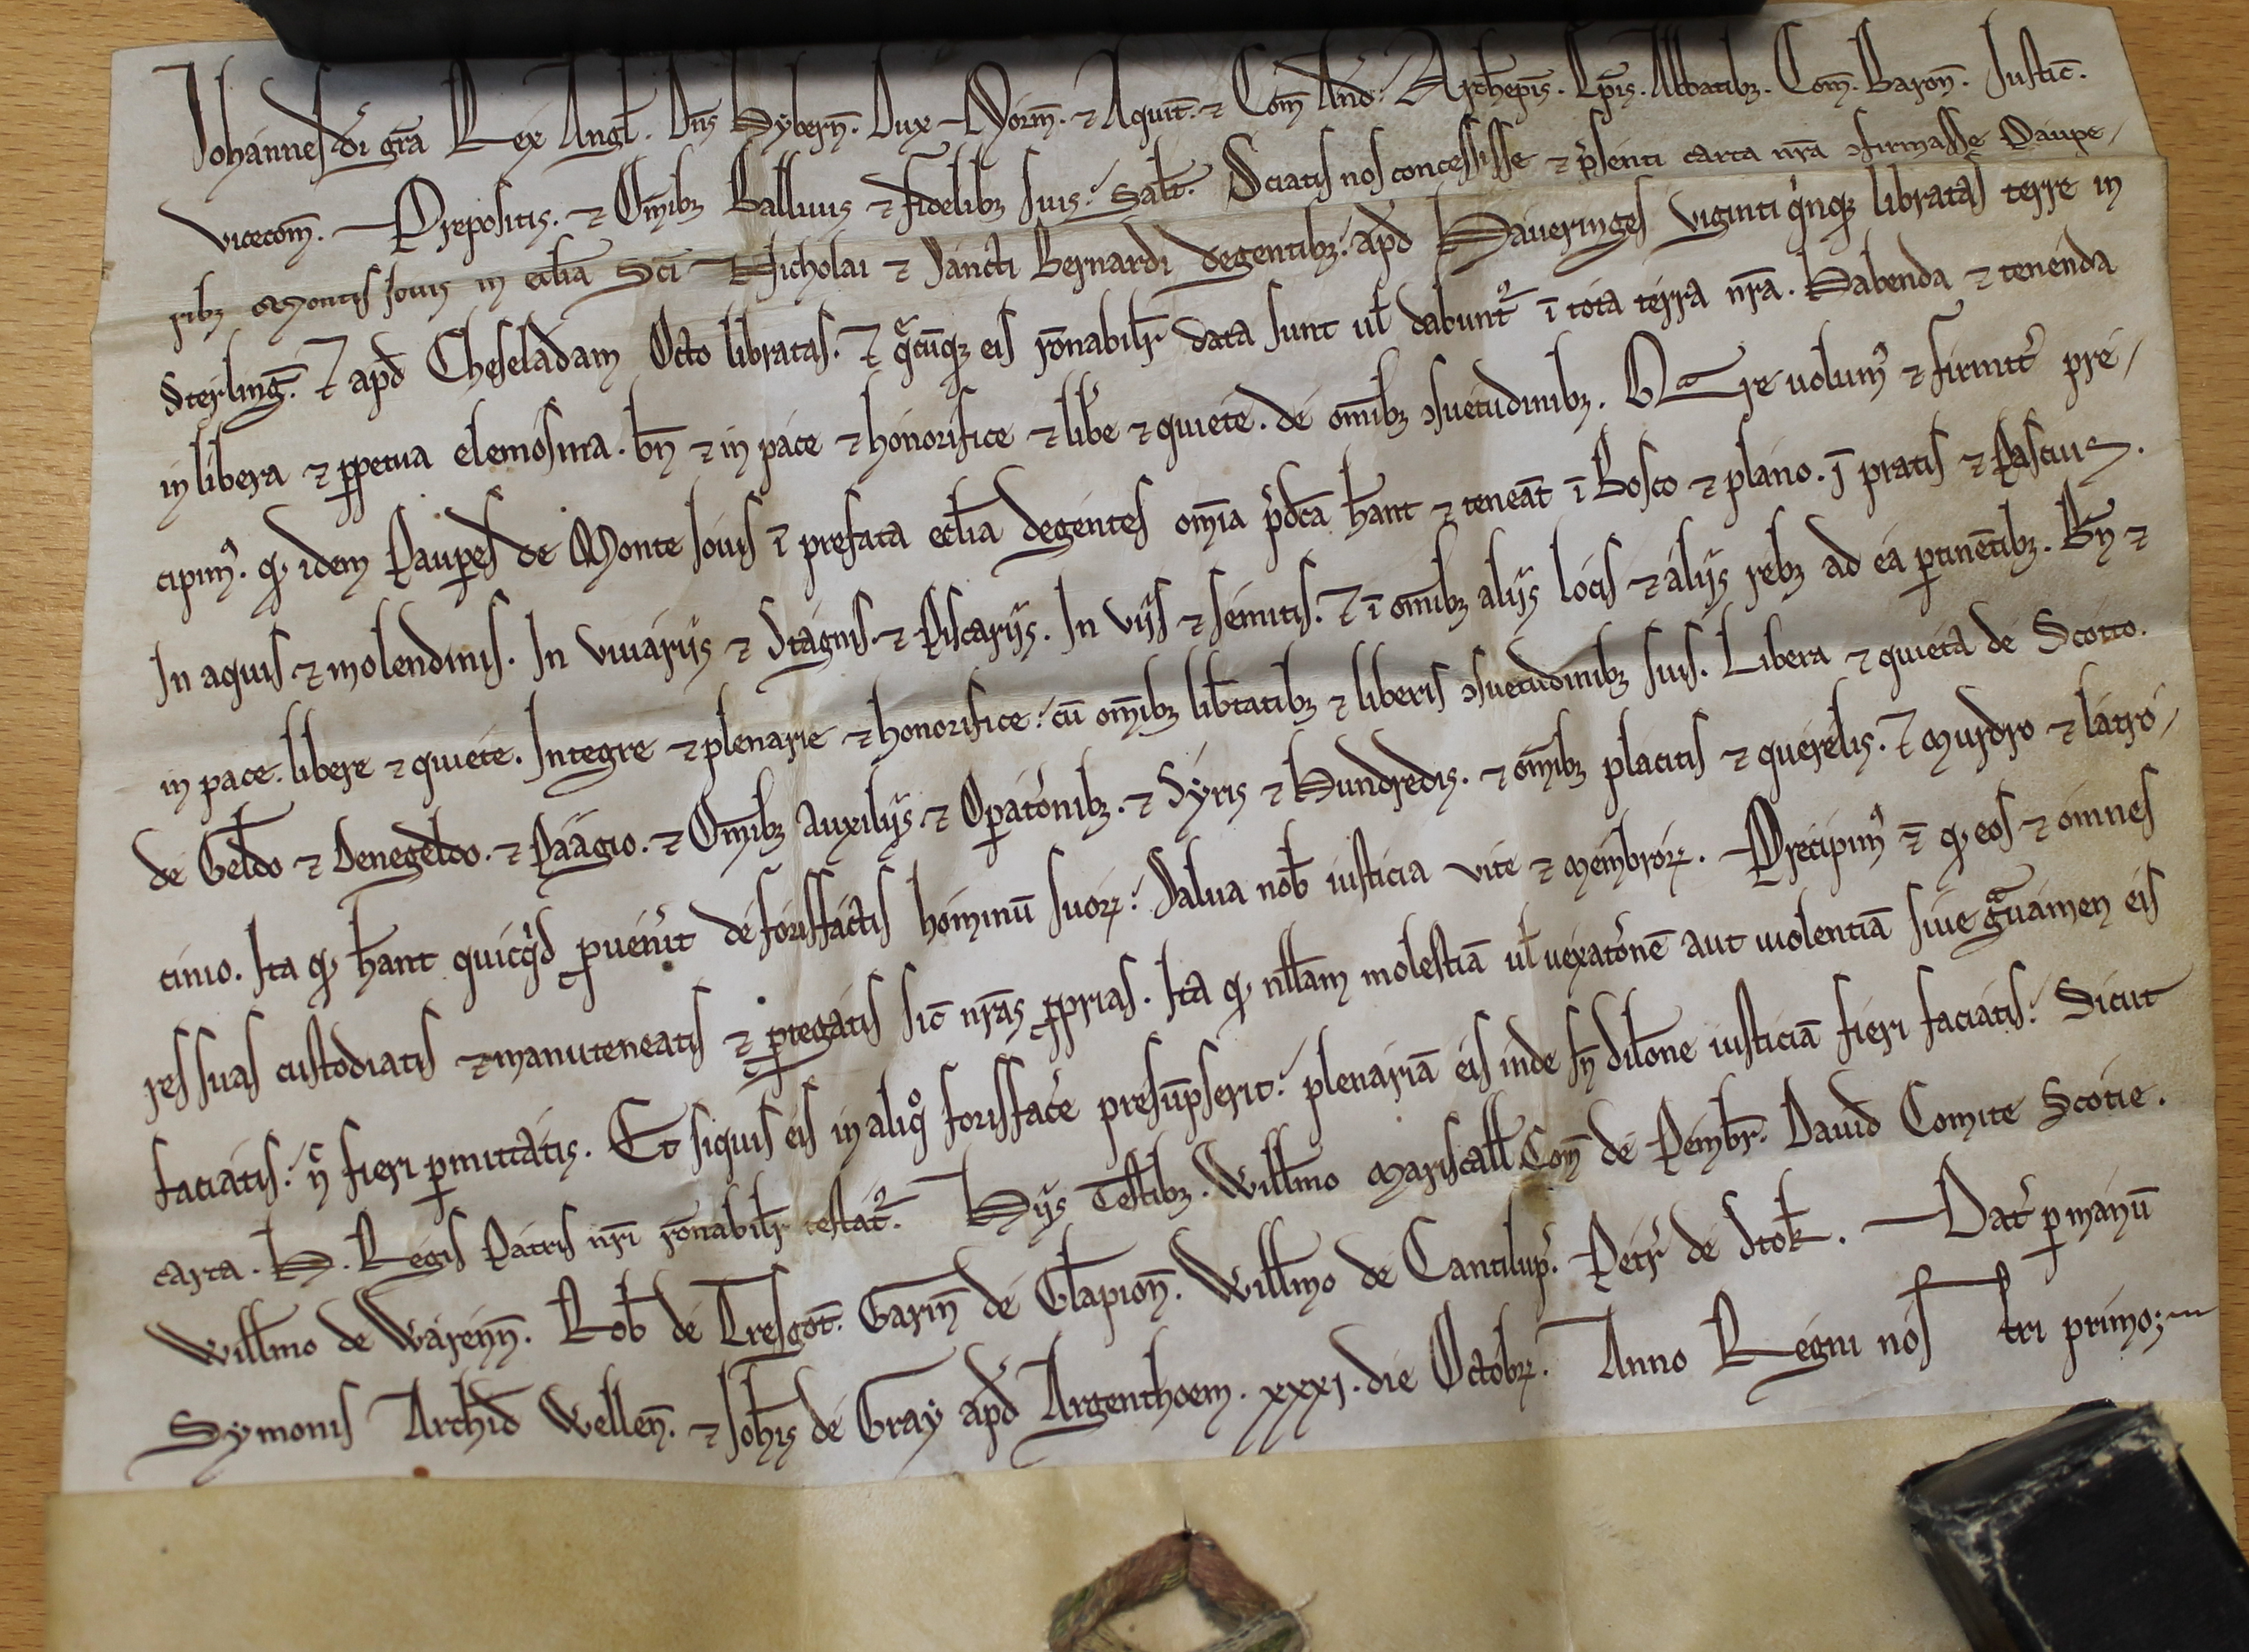 Johannes di gr̄a Rex Angl̄. Dn̄s Hybern̄. Dux Norm̄. ⁊ Aquit̄. ⁊ Com̄ And̄. Archiep̄is. Ep̄is. Abbatibꝫ. Com̄. Baron̄. Justic̄.
vicecom̄. Prepositis. ⁊ Om̄ibꝫ Balliuis ⁊ fidelibꝫ suis. Salt̄. Sciatis nos concessisse ⁊ p̓senti carta nr̄a ꝯfirmasse Paupe/
ribꝫ Montis Jouis in eccl̄ia Sc̄i Nicholai ⁊ Sancti Bernardi degentibꝫ. apd̄ Haueringes viginti q̓nqꝫ libratas terre in
Sterlinḡ. ⁊ apd̄ Cheseladam Octo libratas. ⁊ q̄cūqꝫ eis rōnabilr̄ data sunt ul̄ dabunt᷑ ī tota terra nr̄a. Habenda ⁊ tenenda
in libera ⁊ ꝑpetua elemosina. bn̄ ⁊ in pace ⁊ honorifice ⁊ lib̓e ⁊ quiete. de om̄ibꝫ ꝯsuetudinibꝫ. Qͣre uolumꝰ ⁊ firmit̓ pre/
cipimꝰ. qd̄ idem Pauꝑes de Monte Jouis ī prefata eccl̄ia degentes om̄ia p̓dc̄a hāant ⁊ teneāt ī Bosco ⁊ plano. ī pratis ⁊ Pascuis.
In aquis ⁊ molendinis. In viuariis ⁊ Stagnis ⁊ Piscariis. In viis ⁊ semitis. ⁊ ī om̄ibꝫ aliis locis ⁊ aliis rebꝫ ad ea ꝑtinētibꝫ. Bn̄ ⁊
in pace. libere ⁊ quiete. Integre ⁊ plenarie ⁊ honorifice. cū om̄ibꝫ lib̄tatibꝫ ⁊ liberis ꝯsuetudinibꝫ suis. Libera ⁊ quieta de Scotto.
de Geldo ⁊ Denegeldo. ⁊ Paagio. ⁊ Om̄ibꝫ auxiliis ⁊ Oꝑatōnibꝫ. ⁊ Syris ⁊ Hundredis. ⁊ om̄ibꝫ placitis ⁊ querelis. ⁊ Murdro ⁊ latro/
cinio. Ita qd̄ hāant quicq̓d ꝑuen̓it de forisfactis hominū suoꝝ. Salua nob̄ iusticia vite ⁊ membroꝝ. Precipimꝰ ⁊̄ qd̄ eos ⁊ omnes
res suas custodiatis ⁊ manuteneatis ⁊ ꝓtegatis sic̄ nr̄as ꝓprias. Ita qd̄ null̄am molestiā ul̄ uexatōnē aut uiolentiā siue gͣuamen eis
faciatis. n̄ fieri ꝑmittatis. Et siquis eis in aliqͦ forisfac̓e presūpserit. plenariā eis inde sn̄ dilōne iusticiā fieri faciatis. Sicut
carta. H. Regis Patris nr̄i rōnabilr̄ testat᷑. Hiis Testibꝫ. Willmo Mariscall̄ Com̄ de Pembr̄. Dauid Comite Scotie.
Willmo de Warenn̄. Rob̄ de Tresgot̄. Garin̄ de Glapion̄. Willmo de Cantilup̓. Petr̓ de Stok̄. Dat̓ ꝑ manū
Symonis Archid̄ Wellen̄. ⁊ Joh̄is de Gray apd̄ Argenthoem. xxxj. die Octobꝝ. Anno Regni nos tri primo;